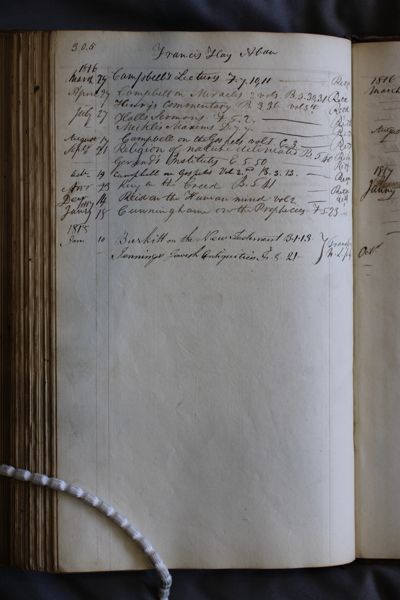 305
Francis Hay Aban
1816
March 29 Campbell's Lectures F. 7. 10, 11 Recd
April 27 Campbell on Miracles 2 vols B. 5. 30, 31 Recd
Henry's Commentary B. 3. 36. vol 5th Recd
July 27 Halls Sermons F. 5. 2. Retd
Maxims D. 7. 7. Retd
August Campbell on the Gospels vol 1 C. 3
Sept 21 Religion of nature delineated B. 5. 40 Retd
Gerard's Institutes E. 5. 50 Retd
Oct. 19 Campbell on Gospels Vol 2nd B. 3. 13. Recd
Novr 13 King on the Creed B. 5. 41 Recd
Decr 14 Reid on the Human mind vol 2 Retd
1817
Janry 18 Cunninghame on the Prophecies F. 5. 23
1818
Jan 10 Burkitt on the New Testament 3. 1. 13
Jennings Jewish Antiquities F. 5. 21
1816
March
August
1817
Janry
Octr